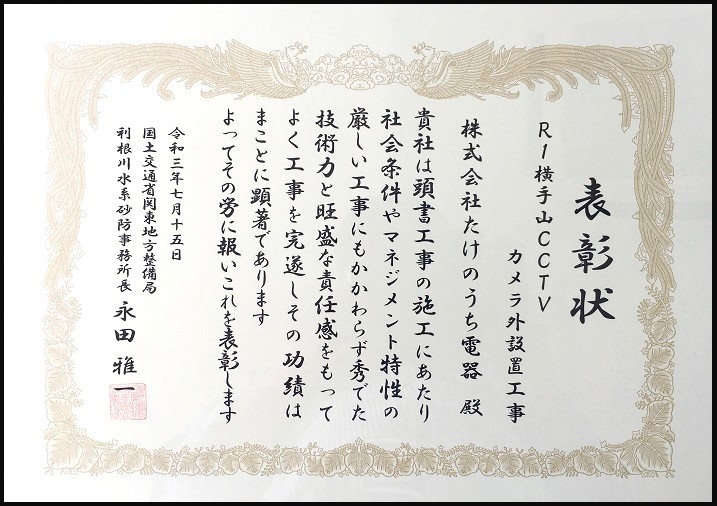 表彰状
R1横手山CCTV
カメラ外設置工事
株式会社たけのうち電器 殿
貴社は頭書工事の施工にあたり
社会条件やマネジメント特性の
厳しい工事にもかかわらず秀でた
技術力と旺盛な責任感をもって
よく工事を完遂しその功績は
まことに顕著であります
よってその労に報いこれを表彰します
令和三年七月十五日
国土交通省関東地方整備局
利根川水系砂防事務所長 永田雅一